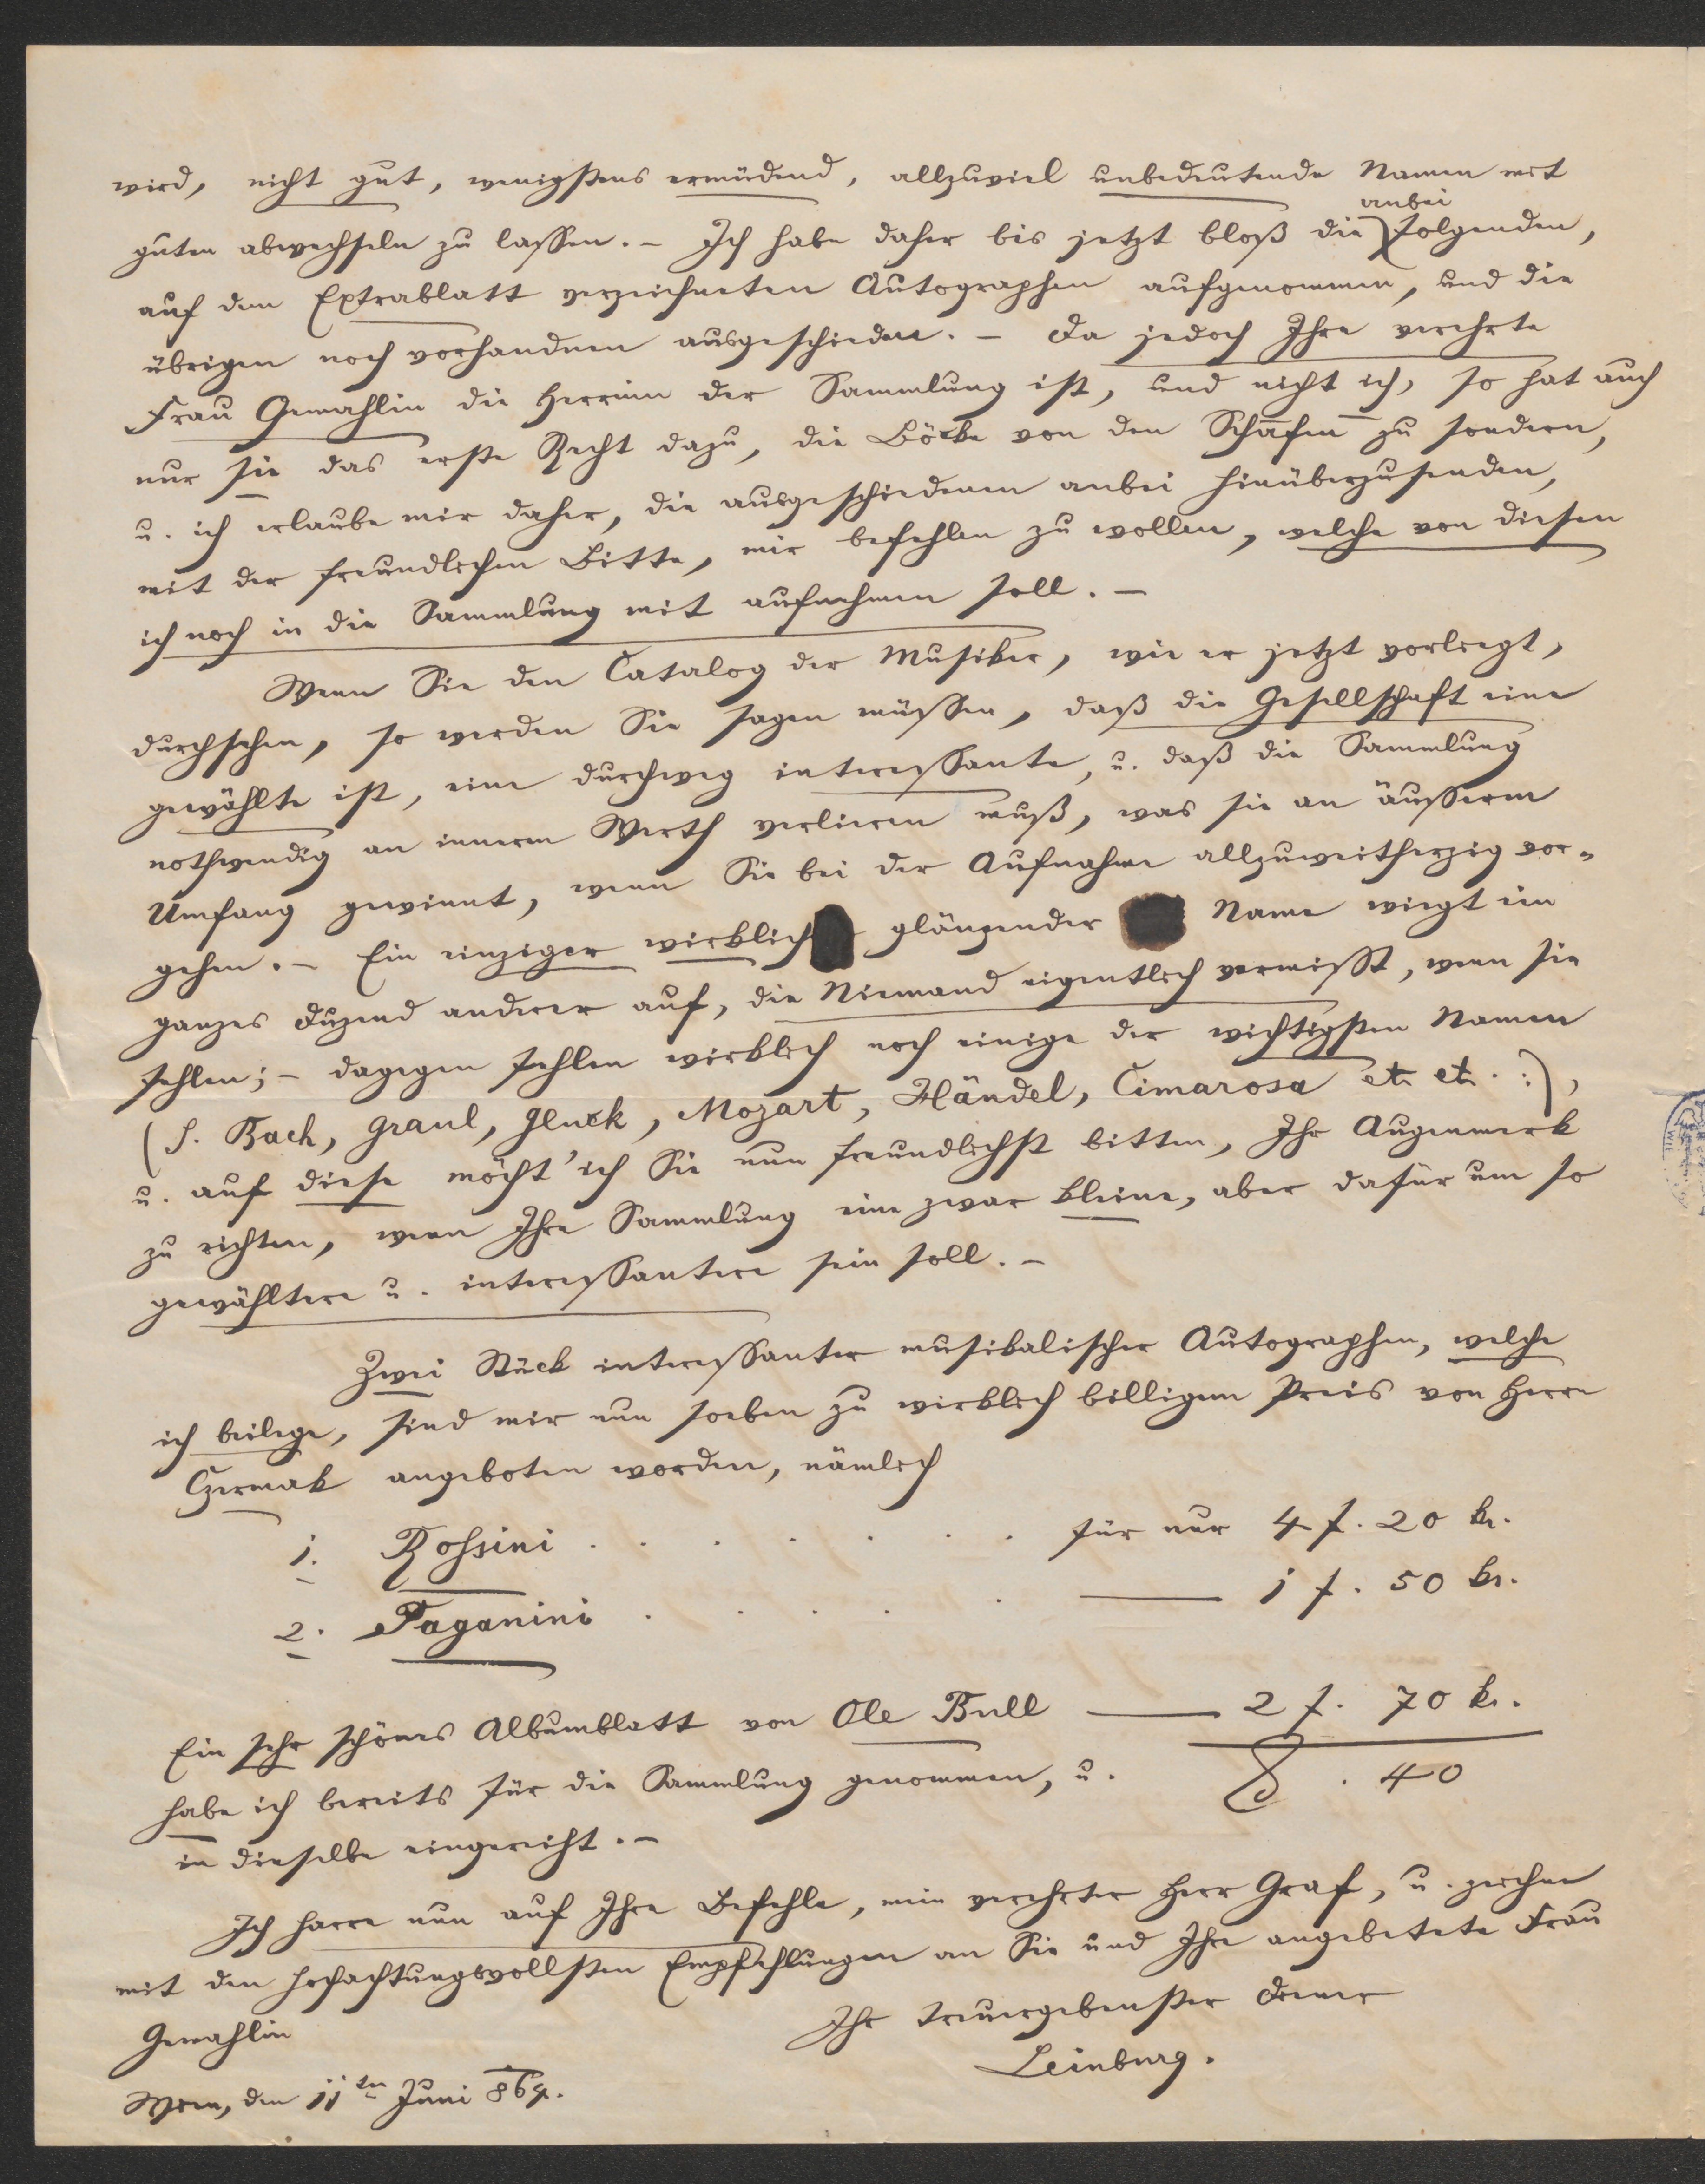 wird, nicht gut, wenigstens ermüdend, allzuviel unbedeutende Namen mit
guten abwechseln zu lassen. – Ich habe daher bis jetzt bloß die anbei folgenden,
auf dem Extrablatt verzeichneten Autographen aufgenommen, und die
übrigen noch vorhandnen ausgeschieden. – Da jedoch Ihre verehrte
Frau Gemahlin die Herrinn der Sammlung ist, und nicht ich, so hat auch
nur sie das erste Recht dazu, die Böcke von den Schafen zu sondern,
u. ich erlaube mir daher, die ausgeschiedenen anbei hinüberzusenden,
mit der freundlichen Bitte, mir befehlen zu wollen, welche von diesen
ich noch in die Sammlung mit aufnehmen soll. –
Wenn Sie den Catalog der Musiker, wie er jetzt vorliegt,
durchsehen, so werden Sie sagen müssen, daß die Gesellschaft eine
gewählte ist, eine durchweg interessante, u. daß die Sammlung
nothwendig an innerm Werth verlieren muß, was sie an äusserm
Umfang gewinnt, wenn Sie bei der Aufnahme allzuweitherzig vor-
gehen. – Ein einziger wirklich glänzender Name wiegt ein
ganzes Duzend anderer auf, die Niemand eigentlich vermisst, wenn sie
fehlen; – dagegen fehlen wirklich noch einige der wichtigsten Namen
(S. Bach, Graul, Gluck, Mozart, Händel, Cimarosa etc etc. :),
u. auf diese möcht' ich Sie nun freundlichst bitten, Ihr Augenmerk
zu richten, wenn Ihre Sammlung eine zwar kleine, aber dafür um so
gewähltere u. interessantere sein soll. –
Zwei Stück interessanter musikalischer Autographen, welche
ich beilege, sind mir nun soeben zu wirklich billigem Preis von Herrn
Czermak angeboten worden, nämlich
1. Rossini . . . . . . für nur 4 f. 20 kr.
2. Paganini . . . . . —— 1 f. 50 kr.
Ein sehr schönes Albumblatt von Ole Bull —— 2 f. 70 kr.
habe ich bereits für die Sammlung genommen, u. 8 . 40
in dieselbe eingereiht. –
Ich harre nun auf Ihre Befehle, mein verehrter Herr Graf, u. zeichne
mit den hochachtungsvollsten Empfehlungen an Sie und Ihre angebetete Frau
Gemahlin
Ihr treuergebenster Diener
Leinburg.
Wien, den 11ten Juni 864.